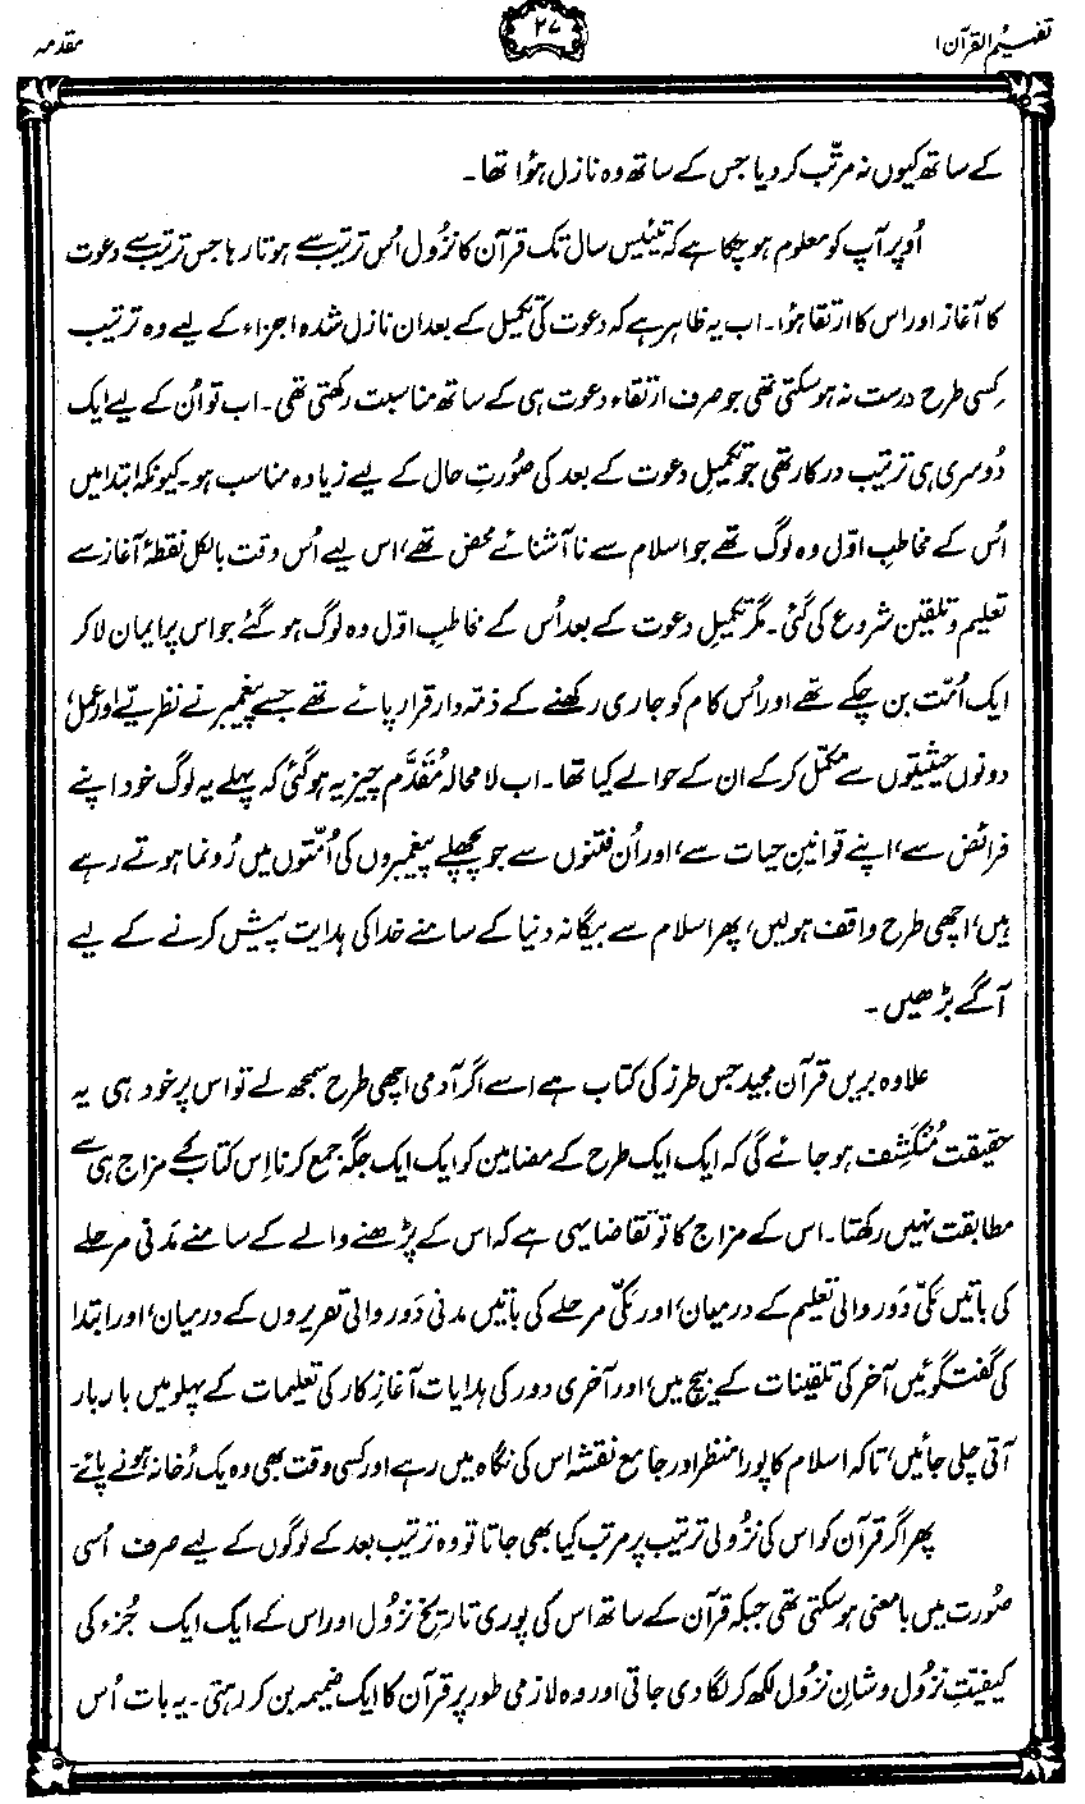 تفہیم القرآن ۱
۲۷
مقدمہ
کے ساتھ کیوں نہ مرتّب کر دیا جس کے ساتھ وہ نازل ہؤا تھا۔
اُوپر آپ کو معلوم ہو چکا ہے کہ تیئیس سال تک قرآن کا نزُول اُس ترتیب سے ہوتا رہا جس ترتیب سے دعوت
کا آغاز اور اس کا ارتقا ہؤا۔ اب یہ ظاہر ہے کہ دعوت کی تکمیل کے بعد ان نازل شدہ اجزاء کے لیے وہ ترتیب
کِسی طرح درست نہ ہو سکتی تھی جو صرف ارتقاء دعوت ہی کے ساتھ مناسبت رکھتی تھی۔ اب تو اُن کے لیے ایک
دُوسری ہی ترتیب درکار تھی جو تکمیلِ دعوت کے بعد کی صُورتِ حال کے لیے زیادہ مناسب ہو۔ کیونکہ ابتدا میں
اُس کے مخاطبِ اوّل وہ لوگ تھے جو اسلام سے ناآشنائے محض تھے، اس لیے اُس وقت بالکل نقطۂ آغاز سے
تعلیم و تلقین شروع کی گئی۔ مگر تکمیلِ دعوت کے بعد اُس کے مخاطبِ اوّل وہ لوگ ہو گئے جو اس پر ایمان لا کر
ایک اُمّت بن چکے تھے اور اُس کام کو جاری رکھنے کے ذمّہ دار قرار پائے تھے جسے پیغمبر نے نظریّے اور عمل،
دونوں حیثیتوں سے مکمّل کر کے ان کے حوالے کیا تھا۔ اب لامحالہ مُقَدَّم چیز یہ ہو گئی کہ پہلے یہ لوگ خود اپنے
فرائض سے، اپنے قوانینِ حیات سے، اور اُن فتنوں سے جو پچھلے پیغمبروں کی اُمّتوں میں رُونما ہوتے رہے
ہیں، اچھی طرح واقف ہو لیں، پھر اسلام سے بیگانہ دنیا کے سامنے خدا کی ہدایت پیش کرنے کے لیے
آگے بڑھیں۔
علاوہ بریں قرآن مجید جس طرز کی کتاب ہے اسے اگر آدمی اچھی طرح سمجھ لے تو اس پر خود ہی یہ
حقیقت مُنکَشِف ہو جائے گی کہ ایک ایک طرح کے مضامین کو ایک ایک جگہ جمع کرنا اِس کتاب کے مزاج ہی سے
مطابقت نہیں رکھتا۔ اس کے مزاج کا تو تقاضا یہی ہے کہ اس کے پڑھنے والے کے سامنے مَدنی مرحلے
کی باتیں مکّی دَور والی تعلیم کے درمیان، اور مکّی مرحلے کی باتیں مدنی دَور والی تقریروں کے درمیان، اور ابتدا
کی گفتگوئیں آخر کی تلقینات کے بیچ میں، اور آخری دور کی ہدایات آغازِ کار کی تعلیمات کے پہلو میں بار بار
آتی چلی جائیں، تاکہ اسلام کا پورا منظر اور جامع نقشہ اس کی نگاہ میں رہے اور کسی وقت بھی وہ یک رُخا نہ ہونے پائے۔
پھر اگر قرآن کو اس کی نزُولی ترتیب پر مرتب کیا بھی جاتا تو وہ ترتیب بعد کے لوگوں کے لیے صرف اُسی
صُورت میں بامعنی ہو سکتی تھی جبکہ قرآن کے ساتھ اس کی پوری تاریخِ نزُول اور اس کے ایک ایک جُزء کی
کیفیّتِ نزُول و شانِ نزُول لکھ کر لگا دی جاتی اور وہ لازمی طور پر قرآن کا ایک ضمیمہ بن کر رہتی۔ یہ بات اُس